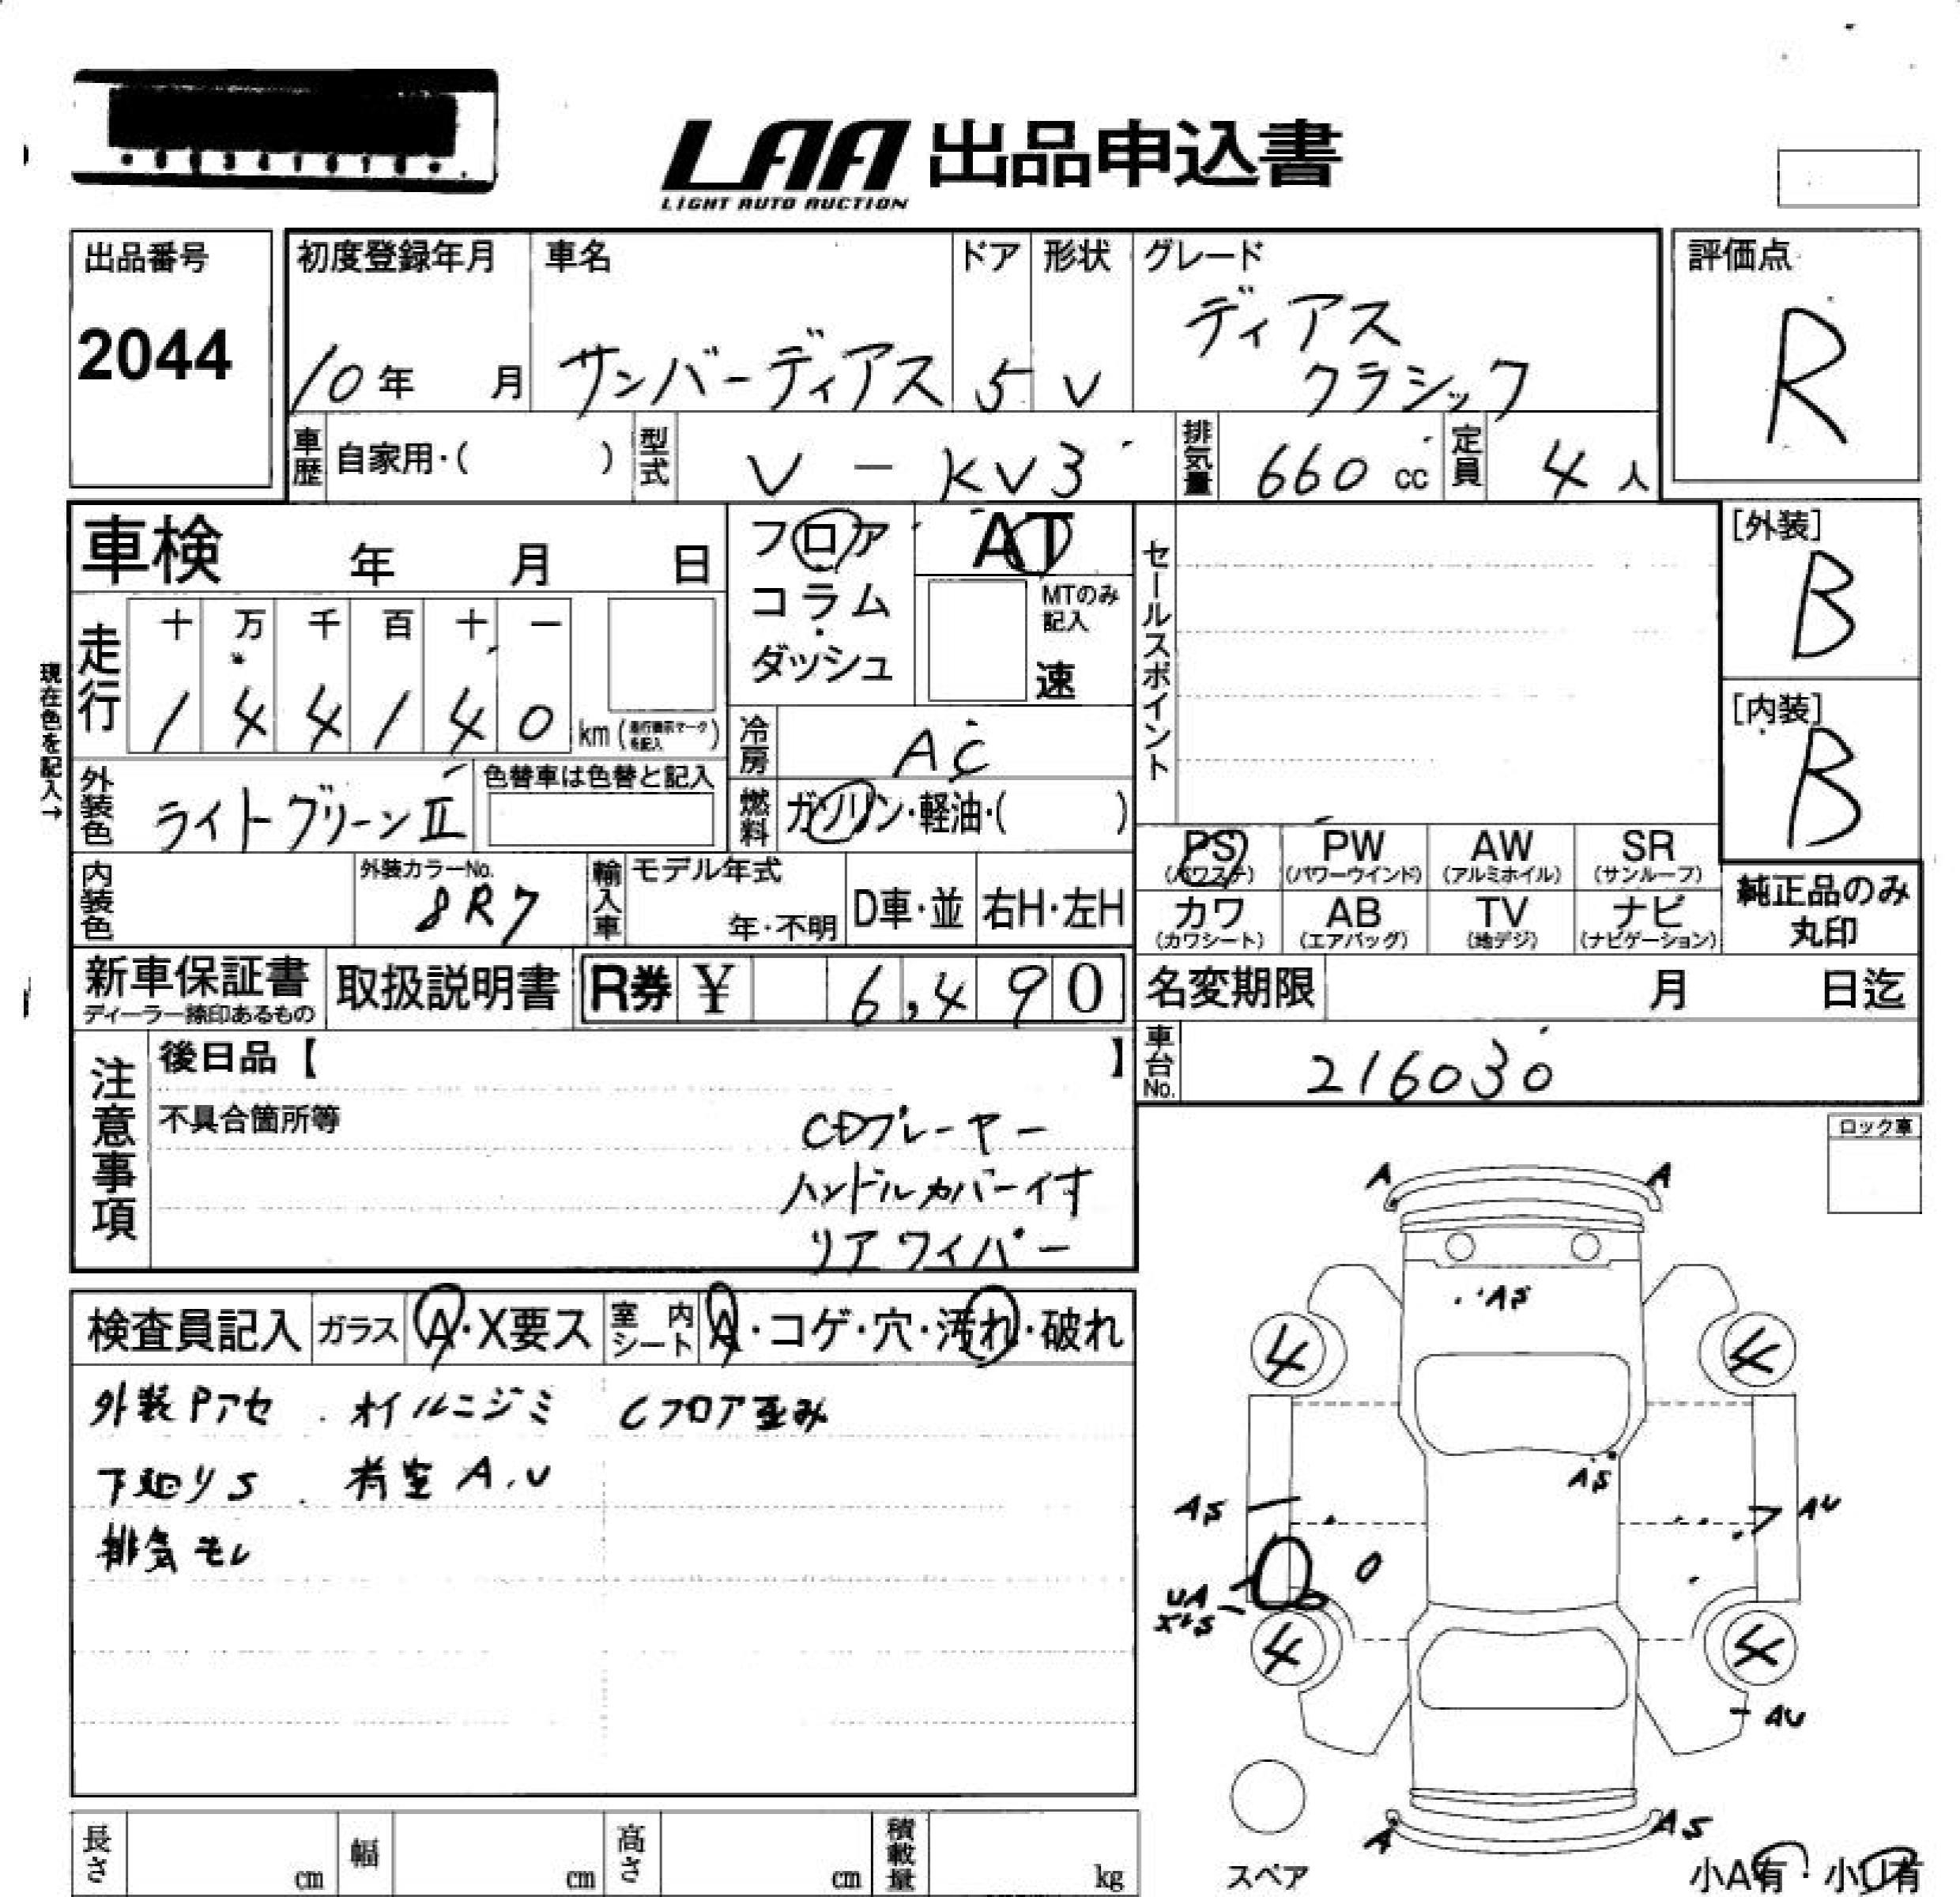 LAA 出品申込書
LIGHT AUTO AUCTION
出品番号
2044
初度登録年月
10年 月
車名
サンバーディアス
ドア
5
形状
V
グレード
ディアス
クラシック
評価点
R
車歴
自家用・( )
型式
V - KV3
排気量
660 cc
定員
4 人
車検 年 月 日
フロア
コラム
・
ダッシュ
AT
MTのみ
記入
速
セールスポイント
[外装]
B
[内装]
B
現在色を記入→
走行
十 万 千 百 十 一
1 4 4 1 4 0 km
冷房
AC
外装色
ライトグリーンII
色替車は色替と記入
燃料
ガソリン・軽油・( )
PS PW AW SR
(パワステ) (パワーウインド) (アルミホイル) (サンルーフ)
カワ AB TV ナビ
(カワシート) (エアバッグ) (地デジ) (ナビゲーション)
純正品のみ
丸印
内装色
外装カラーNo.
8R7
輸入車
モデル年式
年・不明
D車・並
右H・左H
新車保証書
ディーラー捺印あるもの
取扱説明書
R券 ¥ 6,490
名変期限 月 日迄
車台No.
216030
注意事項
後日品【 】
不具合箇所等
CDプレーヤー
ハンドルカバー付
リアワイパー
ロック車
検査員記入
ガラス
A・X要ス
室内
シート
A・コゲ・穴・汚れ・破れ
外装Pアセ . オイルニジミ Cフロア歪み
下廻りS . 荷室 A.U
排気モレ
A A
AS
4 4
AS
AS AU
UA
4 4
AU
A AS
スペア
小A有・小U有
長さ cm
幅 cm
高さ cm
積載量 kg